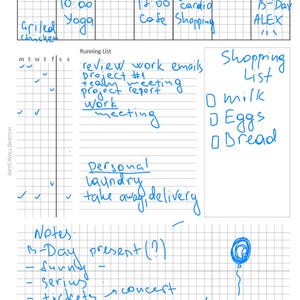 10:00
Yoga
Grilled
chicken
12:00
Cafe
cardio
Shopping
B-Day
ALEX
m t w t f s s
Running List
review work emails
project #1
team meeting
project report
work
meeting
personal
laundry
take away, delivery
Shopping
List
milk
Eggs
Bread
Notes
B-Day present (?)
- funny -
- serius
- tickets → concert